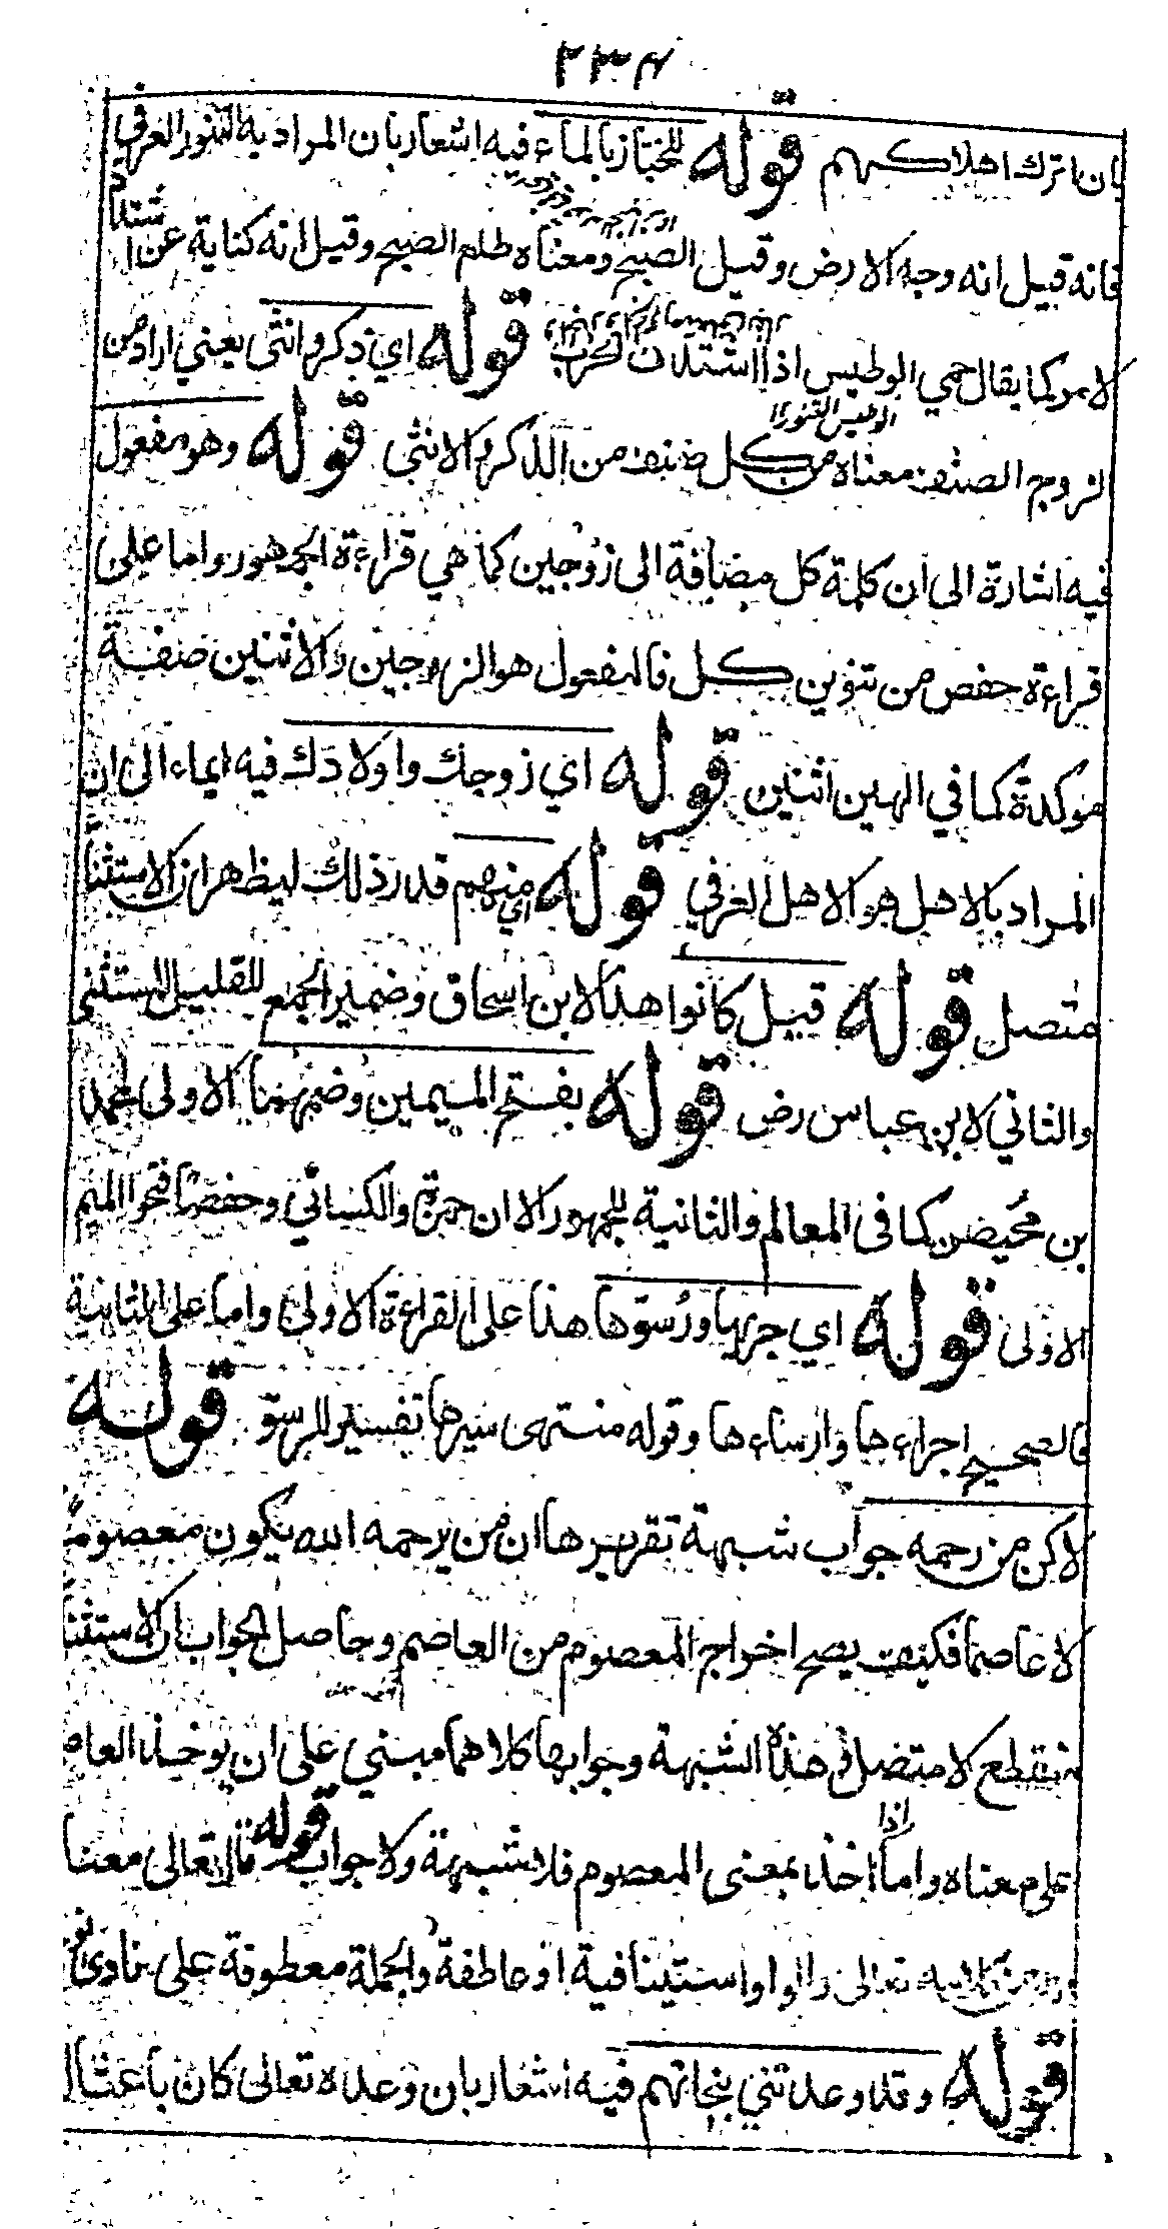 ٢٣٤
بان اترك اهلاكهم قوله للخباز بالماء فيه اشعار بان المراد به التنور العرفي
فانه قيل انه وجه الارض وقيل الصبح ومعناه طلع الصبح وقيل انه كناية عن اشتداد
الامر كما يقال حمي الوطيس اذا اشتدت الحرب قوله اي ذكر وانثى يعني اراد من
الوطيس التنور
الزوج الصنف معناه من كل صنف من الذكر والانثى قوله وهو مفعول
فيه اشارة الى ان كلمة كل مضافة الى زوجين كما هي قراءة الجمهور واما على
قراءة حفص من تنوين كل فالمفعول هو الزوجين والاثنين صفة
موكدة كما في الهين اثنين قوله اي زوجك واولادك فيه ايماء الى ان
المراد بالاهل هو الاهل العرفي قوله اي منهم قدر ذلك ليظهر ان الاستثنا
متصل قوله قيل كانوا هذا لابن اسحاق وضمير الجمع للقليل المستثنى
والثاني لابن عباس رض قوله بفتح الميمين وضمهما الاولى لمحمد
بن محيضن كما في المعالم والثانية للجمهور الا ان حمزة والكسائي وحفصا فتحوا الميم
الاولى قوله اي جريها ورسوها هذا على القراءة الاولى واما على الثانية
فالصحيح اجراءها وارساءها وقوله منتهى سيرها تفسير للرسو قوله
لاكن من رحمه جواب شبهة تقريرها ان من يرحمه الله يكون معصوما
لا عاصما فكيف يصح اخراج المعصوم من العاصم وحاصل الجواب ان الاستثنا
منقطع لا متصل في هذه الشبهة وجوابها كلاهما مبني على ان يوخذ العاصم
على معناه واما اذا اخذ بمعنى المعصوم فلا شبهة ولا جواب قوله قال تعالى معنا
من كلامه تعالى والواو استينافية او عاطفة والجملة معطوفة على نادى نو
قوله وقد وعدتني بنجاتهم فيه اشعار بان وعده تعالى كان باعثا